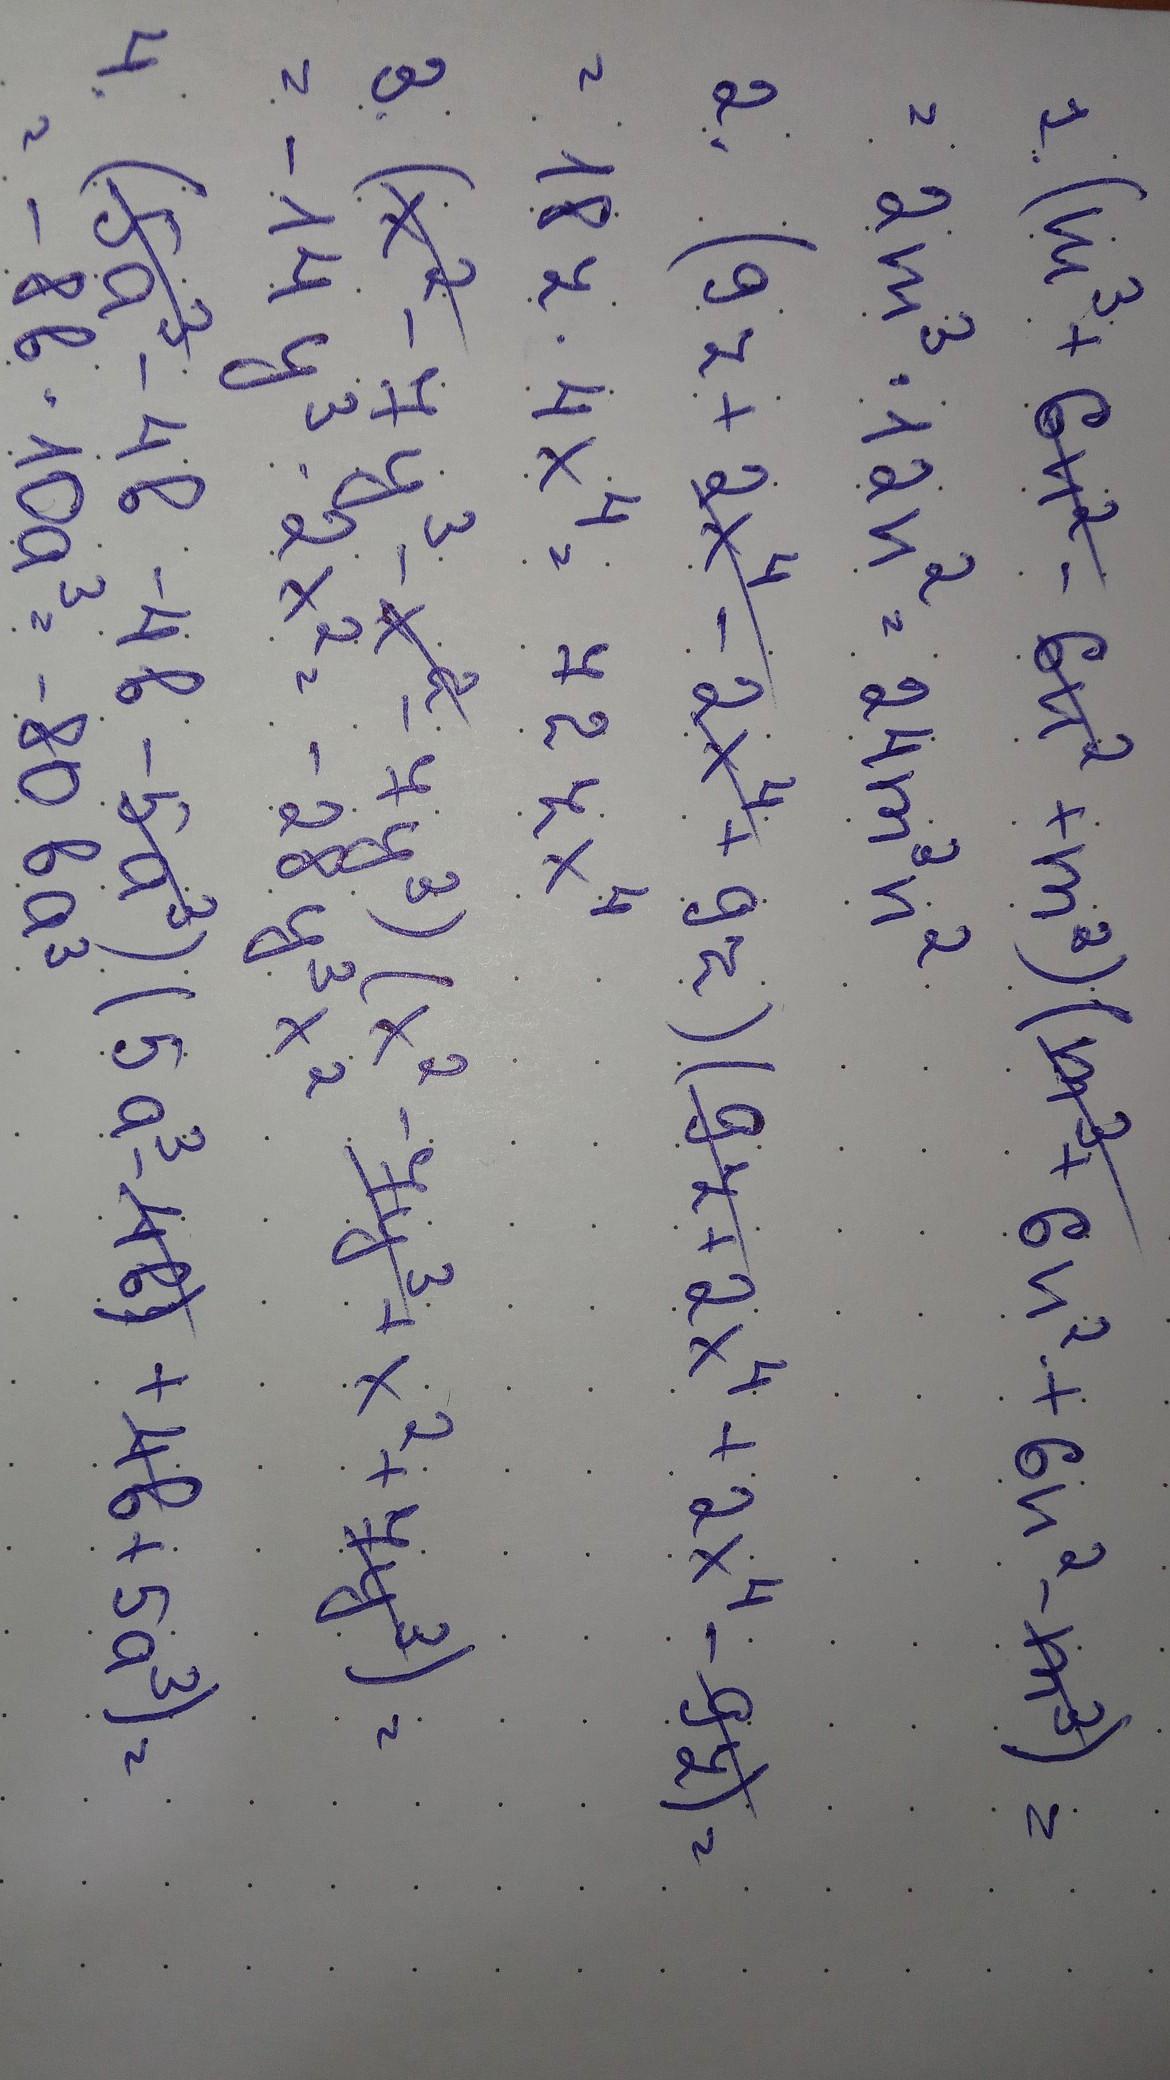 1. (m³ + 6n² - 6n² + m³)(m³ + 6n² + 6n² - m³) =
= 2m³ · 12n² = 24m³n²
2. (9z + 2x⁴ - 2x⁴ + 9z)(9z + 2x⁴ + 2x⁴ - 9z) =
= 18z · 4x⁴ = 72zx⁴
3. (x² - 7y³ - x² - 7y³)(x² - 7y³ + x² + 7y³) =
= -14y³ · 2x² = -28y³x²
4. (5a³ - 4b - 4b - 5a³)(5a³ - 4b) + 4b + 5a³) =
= -8b · 10a³ = -80ba³